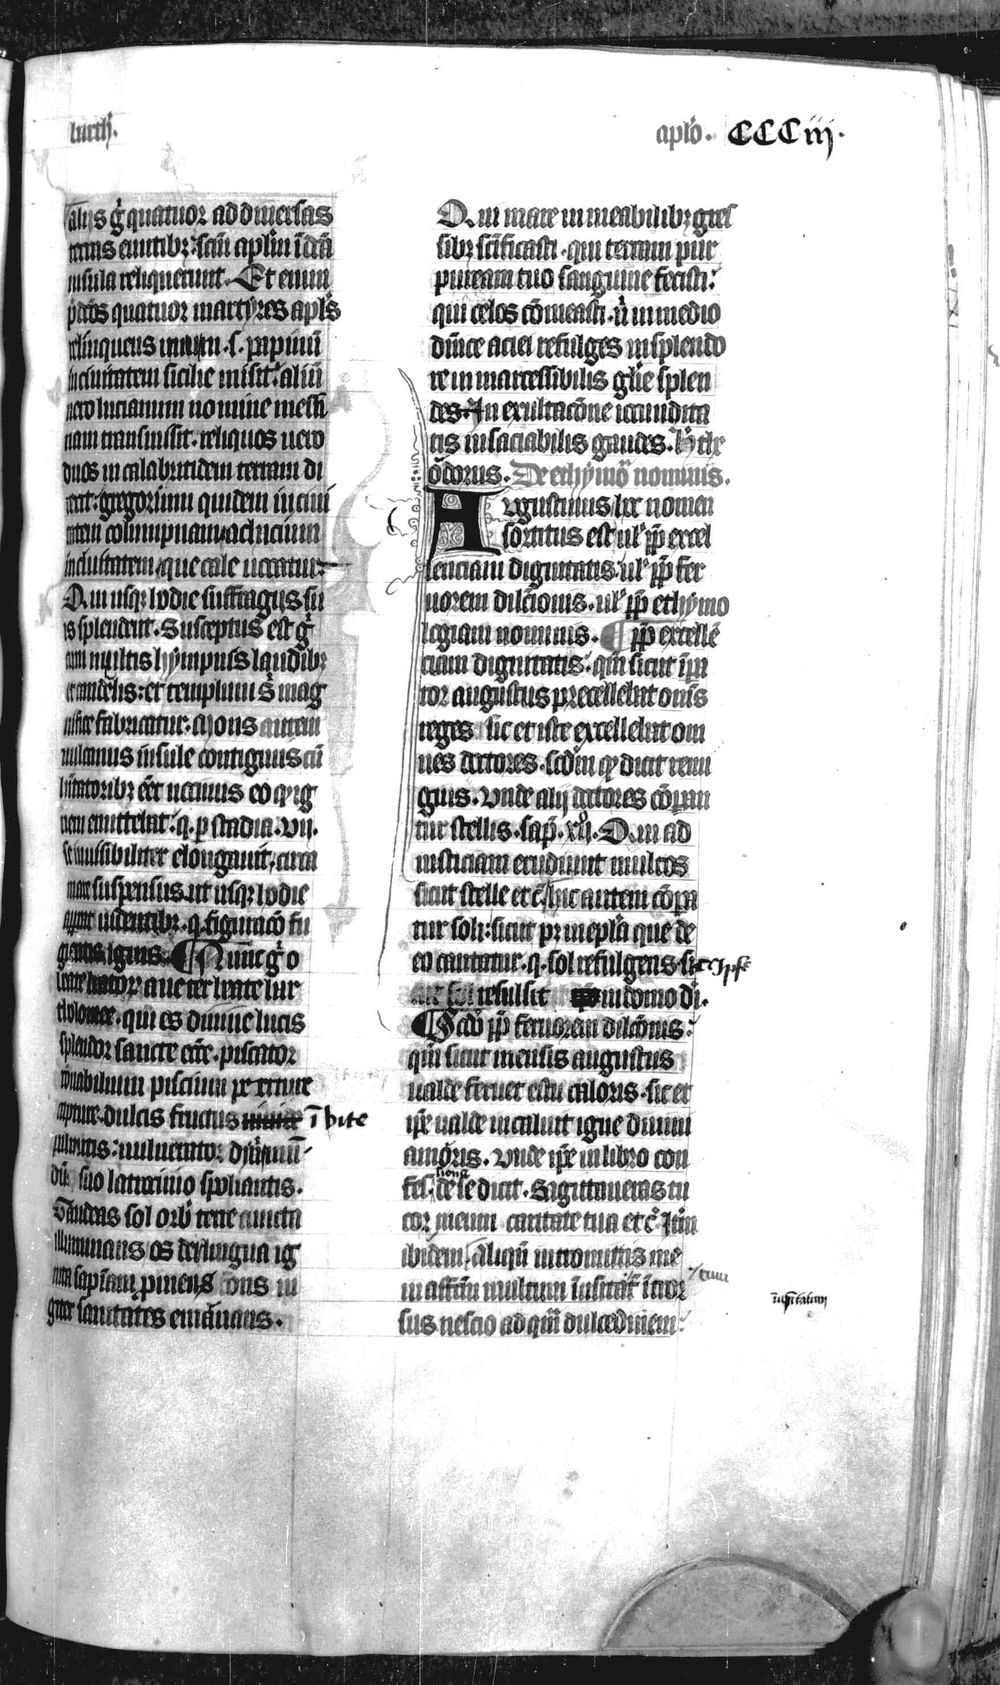 barth.
aplo. CCCiij.
alijs gͥ quatuor ad diuersas
terras euntibꝫ. scm̄ aplm̄ ī dca
insula reliquerunt. Et enim
p̄dcōs quatuor martyres apls
relinquens unum .s. papinū
in ciuitatem sicilie misit. aliū
uero lucianum nomine messi
nam transmisit. reliquos uero
duos in calabritidem terram di
rexit. gregorium quidem in ciui
tatem columpnam. achcium
in ciuitatem que cale uocatur.
Qui usqꝫ hodie suffragijs su
is splendent. Susceptus est gͥ
cum multis hympnis laudibꝫ
et candelis: et templum ei mag
nifice fabricatur. Mons autem
uulcanus insule contiguus cū
hītatoribꝫ eēt nociuus eo qꝫ ig
nem emittebat. q. p stadia. vij.
se inuisibiliter elongauit, circa
mare suspensus. ut usqꝫ hodie
apparet uidentibꝫ. q. figuracō fu
gientis ignis. Nunc gͥ o
beate beatorꝫ aue ter beate bar
tholomee. qui es diuine lucis
splendor sancte ecc̄e. piscator
ronabilium piscium
capture. dulcis fructus ī hite
palmitis: uulnerator
suo latrocinio spoliantis.
Gaudeas sol orbē terre cuncta
illuminans os dei lingua ig
nita sapīam pmens fons iu
giter sanitates emanans.
Qui mare inmeabilibꝫ gres
sibꝫ scīficasti. qui terram pur
puream tuo sanguine fecisti.
qui celos cōmeasti. ꝟ in medio
diuīce aciei refulges in splendo
re in marcessibilis glīe splen
des. In exultacōne iocundita
tis insaciabilis gaudes. hͦ the
odorus. De ethymoͦ nominis.
Augustinus hoc nomen
sortitus est ul ꝓp excel
lenciam dignitatis. ul ꝓp fer
uorem dilcīonis. ul ꝓp ethymo
logiam nominis. ꝓp excellē
ciam dignitatis. qn̄ sicut īpa
tor augustus precellebat om̄s
reges sic et iste excellebat om
nes doctores. scdm qꝫ dicit remi
gius. Vnde alij doctores cōpan
tur stellis. sap. xij. Qui ad
iusticiam erudiunt multos
sicut stelle etc. hic autem cōpa
tur soli: sicut pꝫ in epla que de
eo cantatur. q. sol refulgens sic Ipse
refulsit in domo di.
Scdo ꝓp feruorem dilcōnis.
qn̄ sicut mensis augustus
ualde feruet estu caloris. sic et
ipe ualde incaluit igne diuini
amoris. Vnde ipe in libro con
fessiona de se dicit. Sagittaueras tu
cor meum caritate tua etc. Itm
ibidem. aliqn̄ intromittis me
in affcm multum īusitat ītror
tum
īusitatum
sus nescio ad qm̄ dulcedinem.